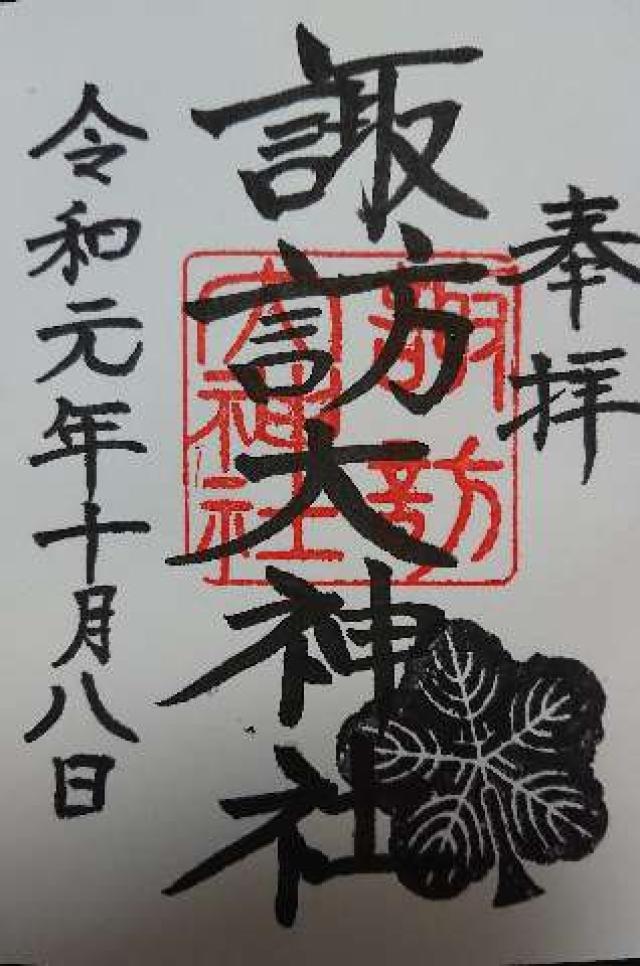 奉拝
諏訪大神社
諏訪
大神社
令和元年十月八日